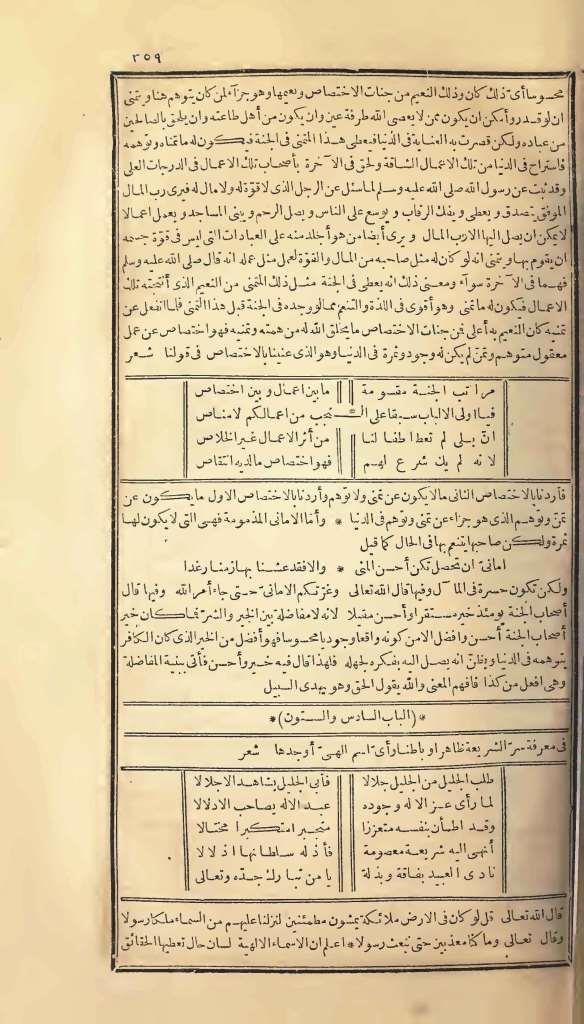 ٣٥٩
محسوسا أى ذلك كان وذلك النعيم من جنات الاختصاص ونعيمها وهو جزاء لمن كان يتوهم هنا ويتمنى
ان لو قدر وأمكن ان يكون ممن لا يعصى الله طرفة عين وان يكون من أهل طاعته وان يلحق بالصالحين
من عباده ولكن قصرت به العناية فى الدنيا فيعطى هذا المتمنى فى الجنة فيكون له ما تمناه وتوهمه
فاستراح فى الدنيا من تلك الاعمال الشاقة ولحق فى الآخرة بأصحاب تلك الاعمال فى الدرجات العلى
وقد ثبت عن رسول الله صلى الله عليه وسلم لما سئل عن الرجل الذى لا قوة له ولا مال له فيرى رب المال
الموفق يتصدق ويعطى ويفك الرقاب ويوسع على الناس ويصل الرحم ويبنى المساجد ويعمل اعمالا
لا يمكن ان يصل اليها الا رب المال ويرى أيضا من هو أجلد منه على العبادات التى ليس فى قوة جسمه
ان يقوم بها ويتمنى انه لو كان له مثل صاحبه من المال والقوة لعمل مثل عمله انه قال صلى الله عليه وسلم
فهما فى الآخرة سواء ومعنى ذلك انه يعطى فى الجنة مثل ذلك المتمنى من النعيم الذى أنتجته تلك
الاعمال فيكون له ما تمنى وهو أقوى فى اللذة والتنعم مما لو وجده فى الجنة قبل هذا التمنى فلما انفعل عن
تمنيه كان النعيم به أعلى فمن جنات الاختصاص ما يخلق الله له من همته وتمنيه فهو اختصاص عن عمل
معقول متوهم وتمن لم يكن له وجود وثمرة فى الدنيا وهو الذى عنينا بالاختصاص فى قولنا شعر
مراتب الجنة مقسومة ما بين اعمال وبين اختصاص
فيا اولى الالباب سبقا على الـ نجب من اعمالكم لا مناص
ان بلى لم تعط اطفالنا من أثر الاعمال غير الخلاص
لانه لم يك شرع لهم فهو اختصاص ما لديه انتقاص
فأردنا بالاختصاص الثانى ما لا يكون عن تمنى ولا توهم وأردنا بالاختصاص الاول ما يكون عن
تمن وتوهم الذى هو جزاء عن تمنى وتوهم فى الدنيا * وأما الامانى المذمومة فهى التى لا يكون لها
ثمرة ولكن صاحبها يتنعم بها فى الحال كما قيل
امانى ان تحصل تكن أحسن المنى * والا فقد عشنا بها زمنا رغدا
ولكن تكون حسرة فى المآل وفيها قال الله تعالى وغرتكم الامانى حتى جاء أمر الله وفيها قال
أصحاب الجنة يومئذ خير مستقرا وأحسن مقيلا لانه لا مفاضلة بين الخير والشر فما كان خير
أصحاب الجنة أحسن وافضل الا من كونه واقعا وجوديا محسوسا فهو أفضل من الخير الذى كان الكافر
يتوهمه فى الدنيا ويظن انه يصل اليه بفكره لجهله فلهذا قال فيه خير وأحسن فأتى ببنية المفاضلة
وهى افعل من كذا فافهم المعنى والله يقول الحق وهو يهدى السبيل
*(الباب السادس والستون)*
فى معرفة سر الشريعة ظاهرا وباطنا وأى اسم الهى أوجدها شعر
طلب الجليل من الجليل جلالا فأبى الجليل يشاهد الاجلالا
لما رأى عز الاله وجوده عبد الاله يصاحب الادلالا
وقد اطمأن بنفسه متعززا متجبرا متكبرا مختالا
أنهى اليه شريعة معصومة فأذله سلطانها اذلالا
نادى العبيد بفاقة وبذلة يا من تبارك جده وتعالى
قال الله تعالى قل لو كان فى الارض ملائكة يمشون مطمئنين لنزلنا عليهم من السماء ملكا رسولا
وقال تعالى وما كنا معذبين حتى نبعث رسولا * اعلم ان الاسماء الالهية لسان حال تعطيها الحقائق